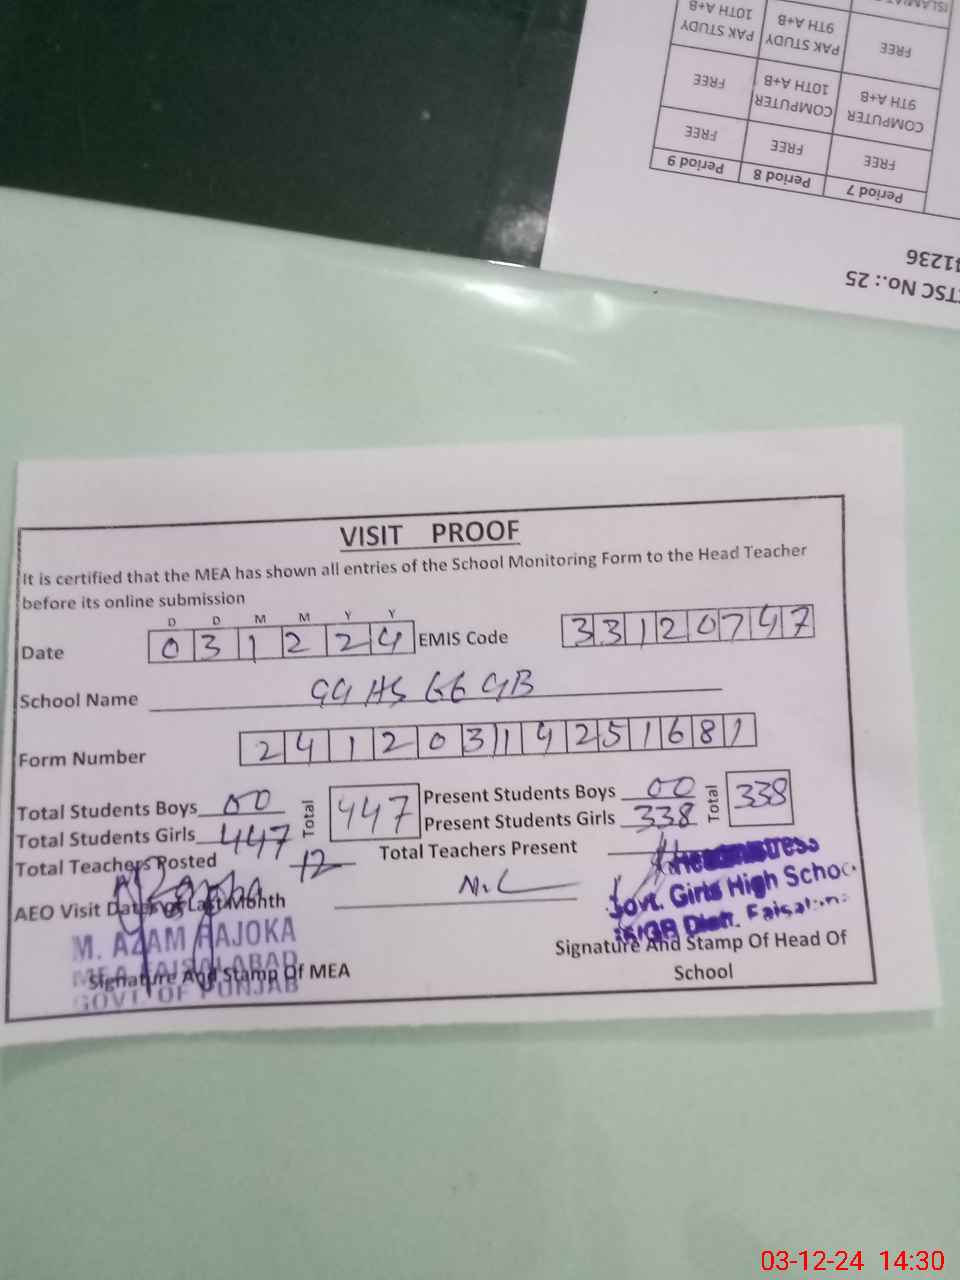 ISLAMIAT
FREE
9TH A+B
PAK STUDY
10TH A+B
PAK STUDY
COMPUTER
9TH A+B
COMPUTER
10TH A+B
FREE
FREE
FREE
FREE
Period 7
Period 8
Period 9
41236
TSC No.: 25
VISIT PROOF
It is certified that the MEA has shown all entries of the School Monitoring Form to the Head Teacher
before its online submission
D D M M Y Y
Date 0 3 1 2 2 4 EMIS Code 3 3 1 2 0 7 4 7
School Name GGHS 66 GB
Form Number 2 4 1 2 0 3 1 4 2 5 1 6 8 1
Total Students Boys 00 Total 447 Present Students Boys 00 Total 338
Total Students Girls 447 Present Students Girls 338
Total Teachers Posted 12 Total Teachers Present
AEO Visit Date of Last Month
Headmistress
Govt. Girls High School
GB Distt. Faisalabad
M. AZAM RAJOKA
MEA FAISALABAD
GOVT. OF PUNJAB
Signature And Stamp Of MEA
Signature And Stamp Of Head Of
School
03-12-24 14:30